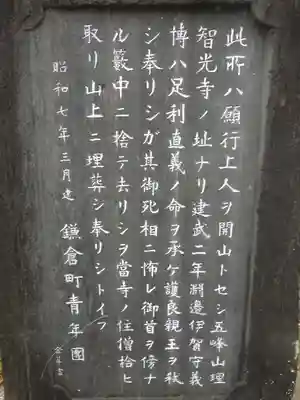 此所ハ願行上人ヲ開山トセシ五峰山理
智光寺ノ址ナリ建武二年淵邊伊賀守義
博ハ足利直義ノ命ヲ承ケ護良親王ヲ弒
シ奉リシガ其御死相ニ怖レ御首ヲ傍ナ
ル籔中ニ捨テ去リシヲ當寺ノ住僧拾ヒ
取リ山上ニ埋葬シ奉リシトイフ
昭和七年三月建 鎌倉町青年團